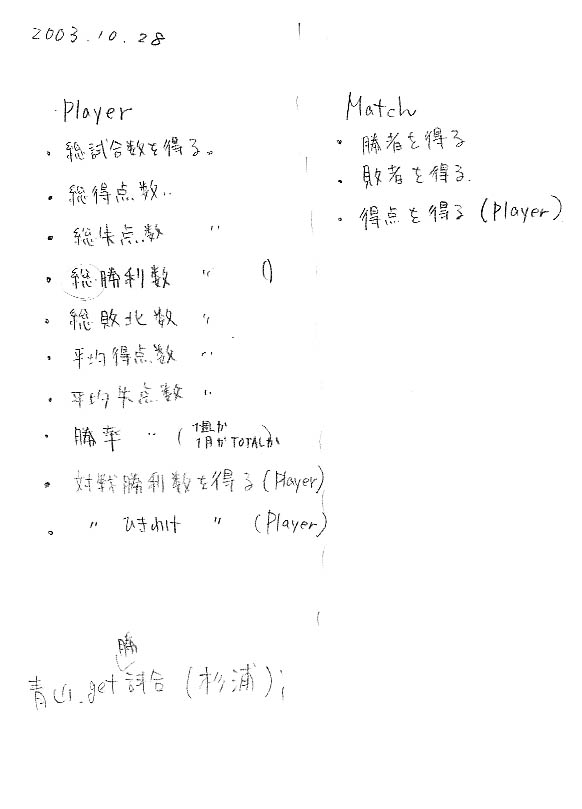 2003.10.28
Player
・総試合数を得る。
・総得点数 〃
・総失点数 〃
・総勝利数 〃 ()
・総敗北数 〃
・平均得点数 〃
・平均失点数 〃
・勝率 〃 (1週か
1月かTOTALか
・対戦勝利数を得る(Player)
・〃 ひきわけ 〃 (Player)
Match
・勝者を得る
・敗者を得る.
・得点を得る(Player)
勝
青山.get試合(杉浦);